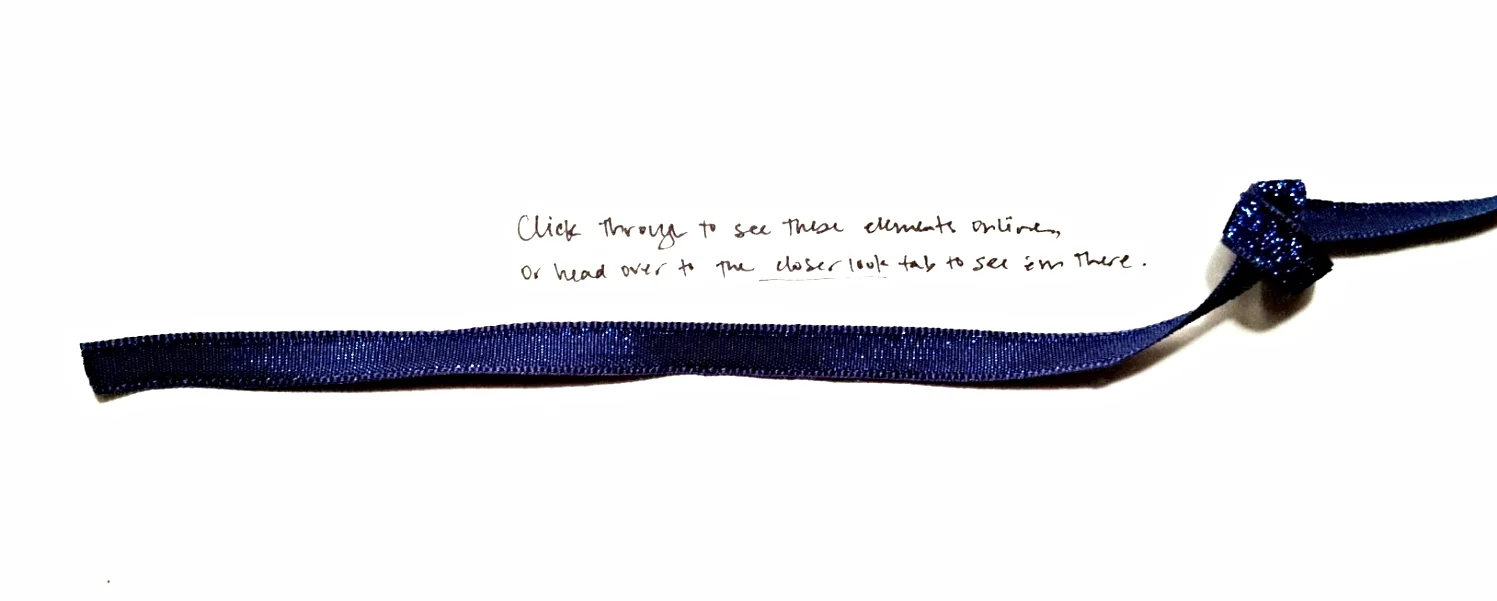 Click through to see these elements online,
or head over to the closer look tab to see 'em there.